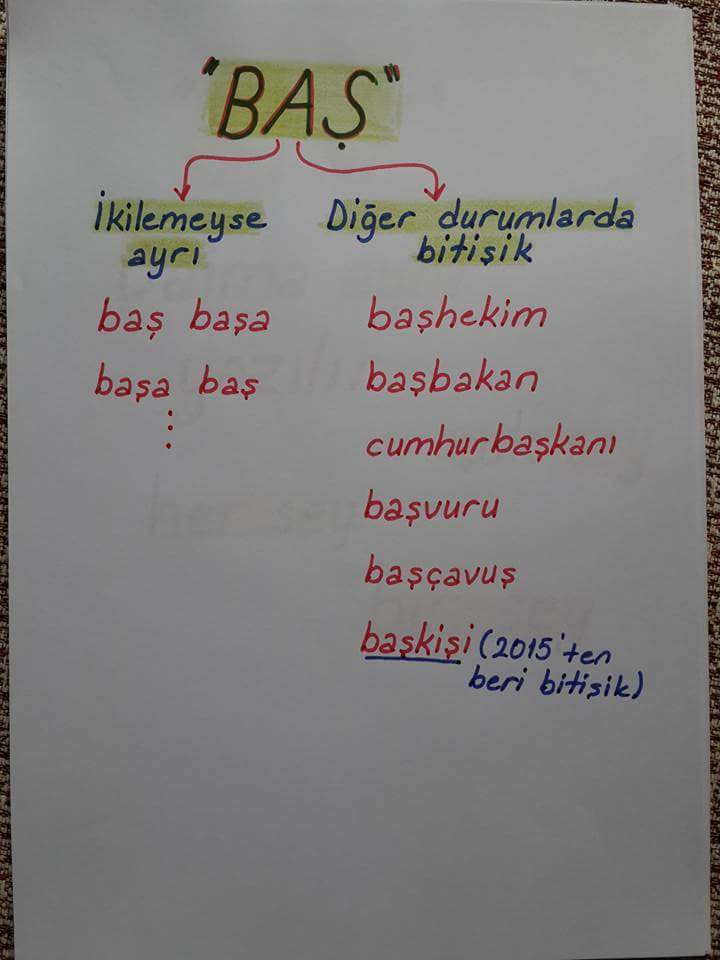 "BAŞ"
İkilemeyse
ayrı
baş başa
başa baş
Diğer durumlarda
bitişik
başhekim
başbakan
cumhurbaşkanı
başvuru
başçavuş
başkişi (2015'ten
beri bitişik)